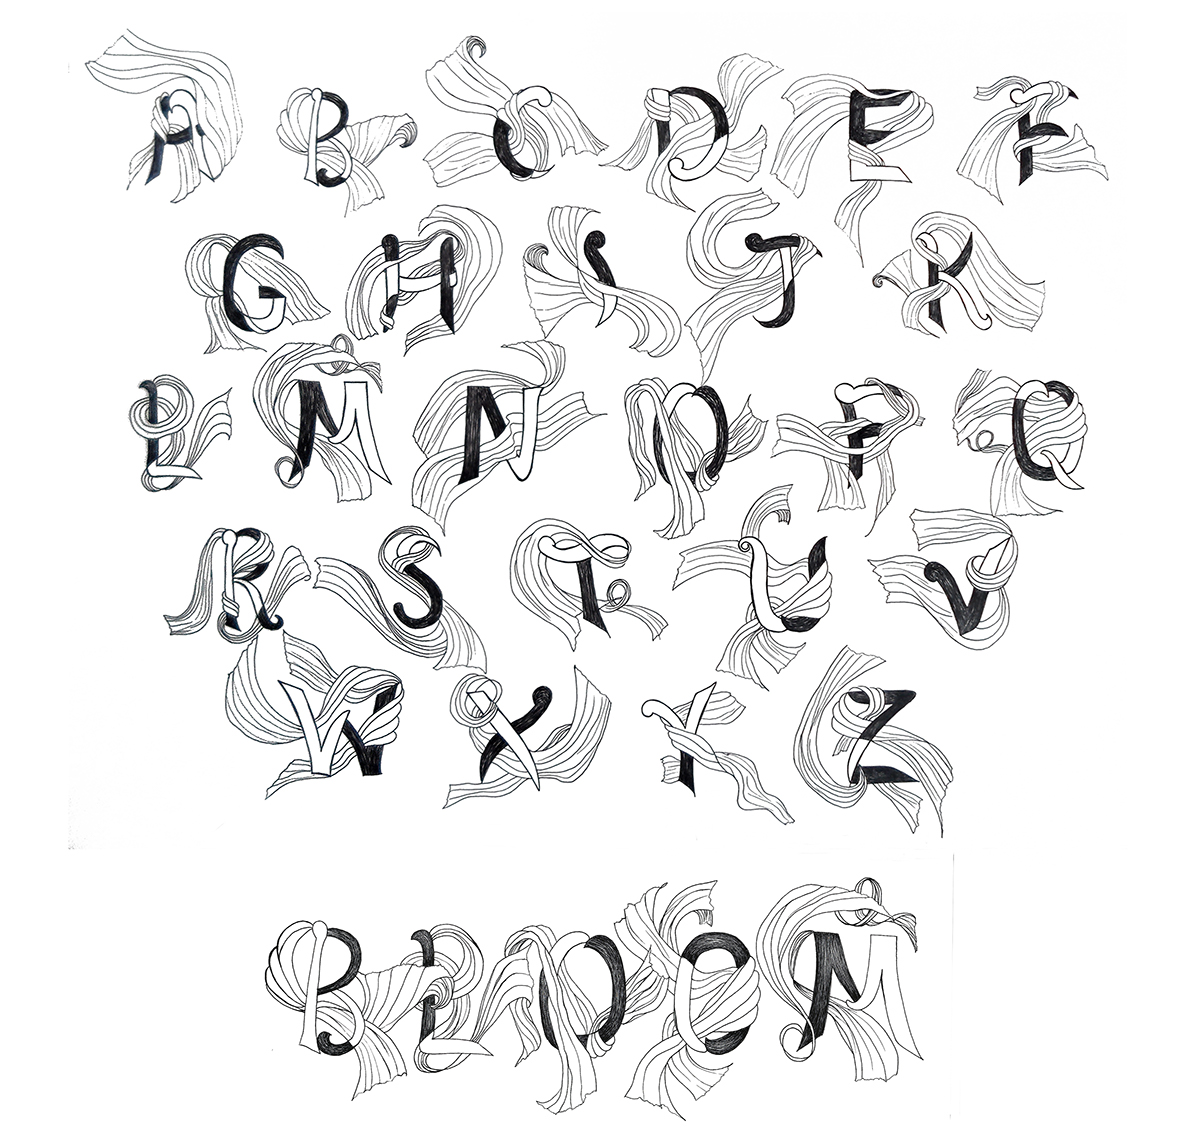 A B C D E F
G H I J K
L M N O P Q
R S T U V
W X Y Z
BLOOM